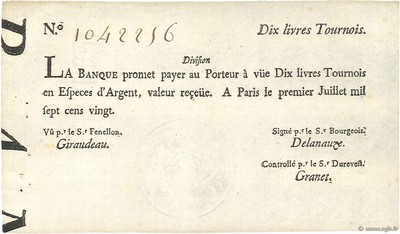 N.º 1042256 Dix livres Tournois.
Division
LA BANQUE promet payer au Porteur à vüe Dix livres Tournois
en Especes d'Argent, valeur reçeüe. A Paris le premier Juillet mil
sept cens vingt.
Vû p.r le S.r Fenellon. Signé p.r le S.r Bourgeois.
Giraudeau. Delanauze.
Controllé p.r le S.r Durevest.
Granet.
© www.cgb.fr